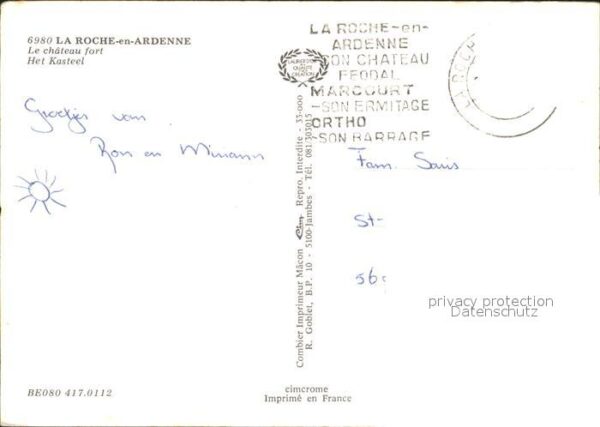 6980 LA ROCHE-en-ARDENNE
Le château fort
Het Kasteel
LAURIER D'OR
QUALITE
CREATION
LA ROCHE-en-
ARDENNE
SON CHATEAU
FEODAL
MARCOURT
-SON ERMITAGE
ORTHO
-SON BARRAGE
LA ROCHE
Groetjes van
Ron en
Fam. Saris
St-
56
Combier Imprimeur Mâcon Repro. Interdite - 35-000
R. Goblet, B.P. 10 - 5100-Jambes - Tél. 081/303015
privacy protection
Datenschutz
BE080 417.0112
cimcrome
Imprimé en France